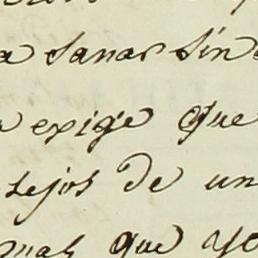 a sanar sin
exige que
sejos de un
mas que yo